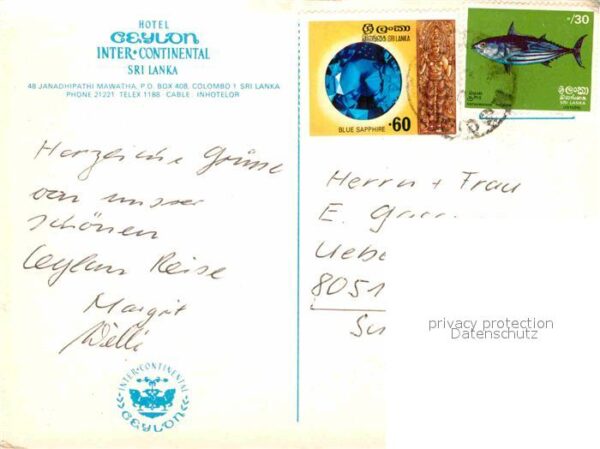 HOTEL
CEYLON
INTER•CONTINENTAL
SRI LANKA
48 JANADHIPATHI MAWATHA, P.O. BOX 408, COLOMBO 1 SRI LANKA
PHONE 21221 TELEX 1188 CABLE: INHOTELOR
ශ්‍රී ලංකා
இலங்கை SRI LANKA
BLUE SAPPHIRE .60
-/30
ශ්‍රී ලංකා
இலங்கை
SRI LANKA
Herzliche Grüsse
von unser
schönen
Ceylan Reise
Margrit
Willi
Herrn + Frau
E.
Uebe
8051
privacy protection
Datenschutz
INTER•CONTINENTAL
CEYLON